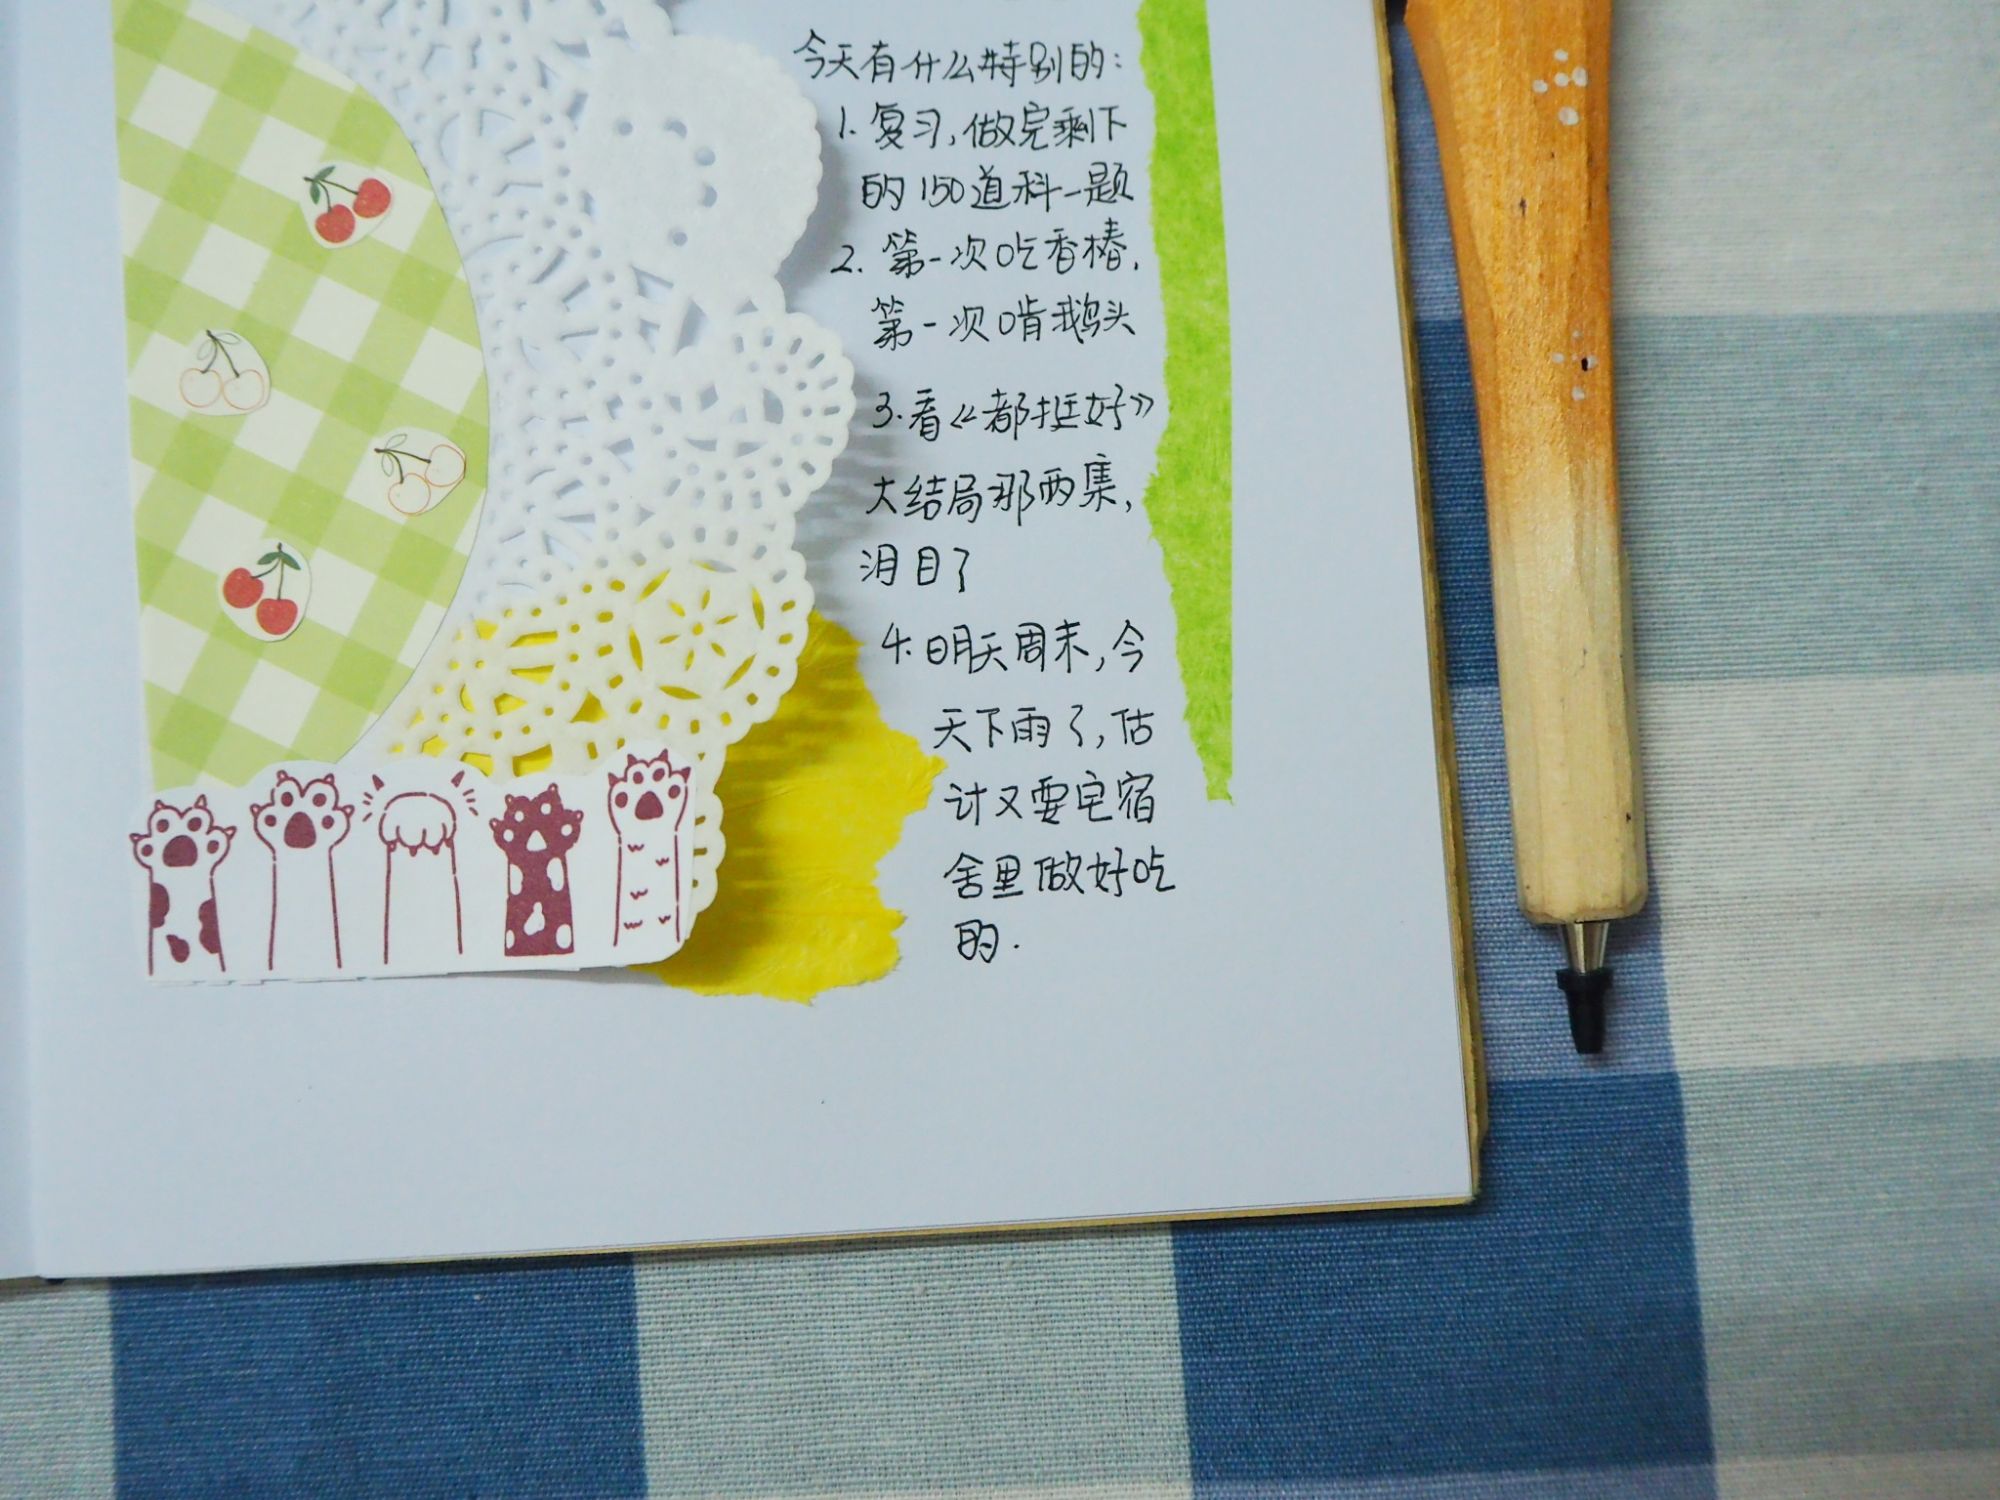 今天有什么特别的:
1. 复习,做完剩下
的150道科一题
2. 第一次吃香椿,
第一次啃鹅头
3. 看《都挺好》
大结局那两集,
泪目了
4. 明天周末,今
天下雨了,估
计又要宅宿
舍里做好吃
的.